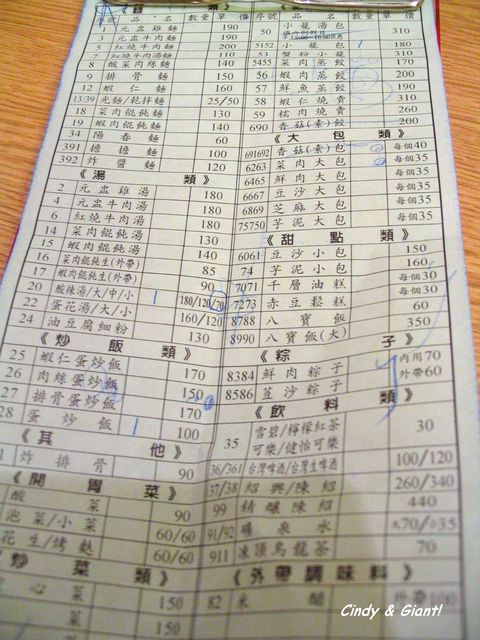 《麵 類》
序號 品 名 數量 單 價
1 元盅雞麵 190
3 元盅牛肉麵 190
5 紅燒牛肉麵 200
7 紅燒牛肉湯麵 110
8 酸菜肉絲麵 140
9 排骨麵 150
12 蝦仁麵 160
13/39 光麵/乾拌麵 25/50
18 菜肉餛飩麵 130
19 蝦肉餛飩麵 140
34 陽春麵 60
391 擔擔麵 100
392 炸醬麵 120
《湯 類》
2 元盅雞湯 180
4 元盅牛肉湯 180
6 紅燒牛肉湯 190
14 菜肉餛飩湯 130
15 蝦肉餛飩湯 140
16 菜肉餛飩生(外帶) 85
17 蝦肉餛飩生(外帶) 90
20 酸辣湯/大/中/小 1 180/120/70
22 蛋花湯/大/小 160/120
24 油豆腐細粉 130
《炒 飯 類》
25 蝦仁蛋炒飯 170
26 肉絲蛋炒飯 150
27 排骨蛋炒飯 170
28 蛋炒飯 1 100
《其 他》
炸排骨 90
《開 胃 菜》
酸菜 90
泡菜/小菜 60/60
花生/烤麩 60/60
《炒 菜 類》
心菜 150
150
序號 品 名 數量 單 價
50 小籠湯包 310
5152 小籠包 1 180
53 蟹粉小籠 310
5455 菜肉蒸餃 170
56 蝦肉蒸餃 200
57 鮮魚蒸餃 190
58 蝦仁燒賣 310
59 糯肉燒賣 260
690 香菇(素)餃 200
《大 包 類》
691692 香菇(素)包 每個40
6263 菜肉大包 每個35
6465 鮮肉大包 每個35
6667 豆沙大包 每個35
6869 芝麻大包 每個35
75750 芋泥大包 每個35
《甜 點 類》
6061 豆沙小包 150
74 芋泥小包 160
7071 千層油糕 每個30
7273 赤豆鬆糕 每個30
8788 八寶飯 60
8990 八寶飯(大) 350
《粽 子》
8384 鮮肉粽子 內用70
8586 荳沙粽子 外帶60
《飲 料 類》
35 雪碧/檸檬紅茶 30
可樂/健怡可樂
36/361 台灣啤酒/台灣生啤酒 100/120
37/38 紹興/陳紹 260/340
99 精釀陳紹 440
91/92 礦泉水 大70/小35
911 凍頂烏龍茶 70
《外帶調味料》
82 米醋 外帶100
Cindy & Giant!